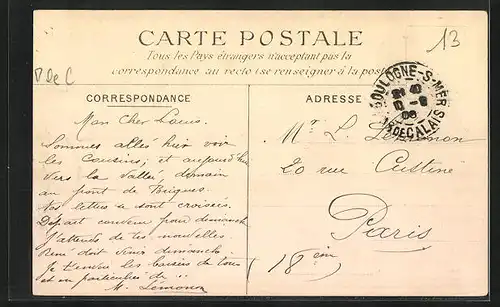 13
P de C
CARTE POSTALE
Tous les Pays étrangers n'acceptant pas la
correspondance au recto (se renseigner à la poste
BOULOGNE-S-MER
PAS DE CALAIS
CORRESPONDANCE
Mon Cher Louis.
Sommes allés hier voir
les Cousins; et aujourd'hui
vers la Vallée, demain
au pont de Briques.
Nos lettres se sont croisées.
Départ convenu pour dimanche
J'attends de tes nouvelles
René doit venir dimanche.
Je t'envoie les baisers de tous
et en particulier de ...
M. Lémonon
ADRESSE
Mr L. Lémonon
20 rue Custine
Paris
(18 èm